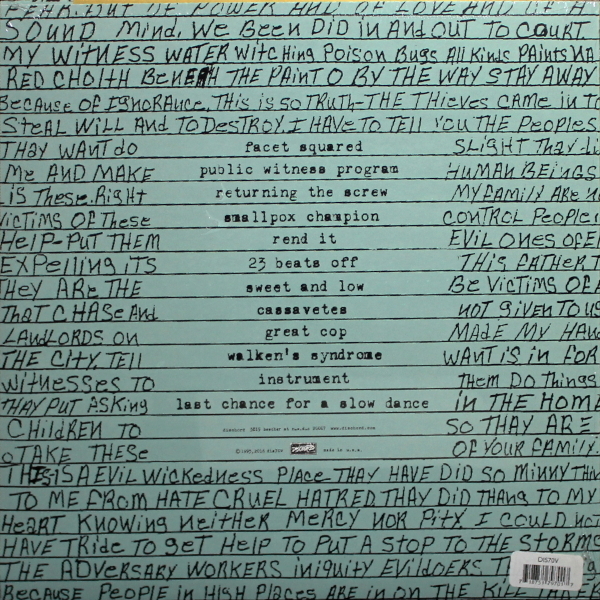 FEAR. BUT OF POWER AND OF LOVE AND OF A
SOUND MIND. WE BEEN DID IN AND OUT TO COURT
MY WITNESS WATER WITCHING POISON BUGS All KINDS PAINTS
RED CHOITH BENEATH THE PAINT O BY THE WAY STAY AWAY
BECAUSE OF IGNORANCE, THIS IS SO TRUTH-THE THIEVES CAME IN TO
STEAL WILL AND TO DESTROY. I HAVE TO TELL YOU THE PEOPLES
THAY WANT do facet squared SLIGHT THAY
ME AND MAKE public witness program HUMAN BEINGS
IS THESE. RIGHT returning the screw MY FAMILY ARE
VICTIMS OF THESE smallpox champion CONTROL PEOPLE
HELP-PUT THEM rend it EVIL ONES OF
EXPELLING ITS 23 beats off THIS FATHER
THEY ARE THE sweet and low BE VICTIMS OF
THAT CHASE AND cassavetes NOT GIVEN TO US
LANDLORDS ON great cop MADE MY
THE CITY. TELL walken's syndrome WANT IS IN FOR
WITNESSES TO instrument THEM DO THINGS
THAY PUT ASKING last chance for a slow dance IN THE HOME
CHILDREN TO dischord 3819 beecher st n.w. d.c 20007 www.dischord.com SO THAY ARE
TAKE THESE DISCHORD made in u.s.a. OF YOUR FAMILY.
THIS IS A EVIL WICKEDNESS PLACE THAY HAVE DID SO MINNY
TO ME FROM HATE CRUEL HATRED THAY DID THANG TO MY
HEART KNOWING NEITHER MERCY NOR PITY. I COULD NOT
HAVE TRIDE TO GET HELP TO PUT A STOP TO THE STORMS
THE ADVERSARY WORKERS INIQUITY EVILDOERS
BECAUSE PEOPLE IN HIGH PLACES ARE IN ON THE KILL TAKE
DIS70V